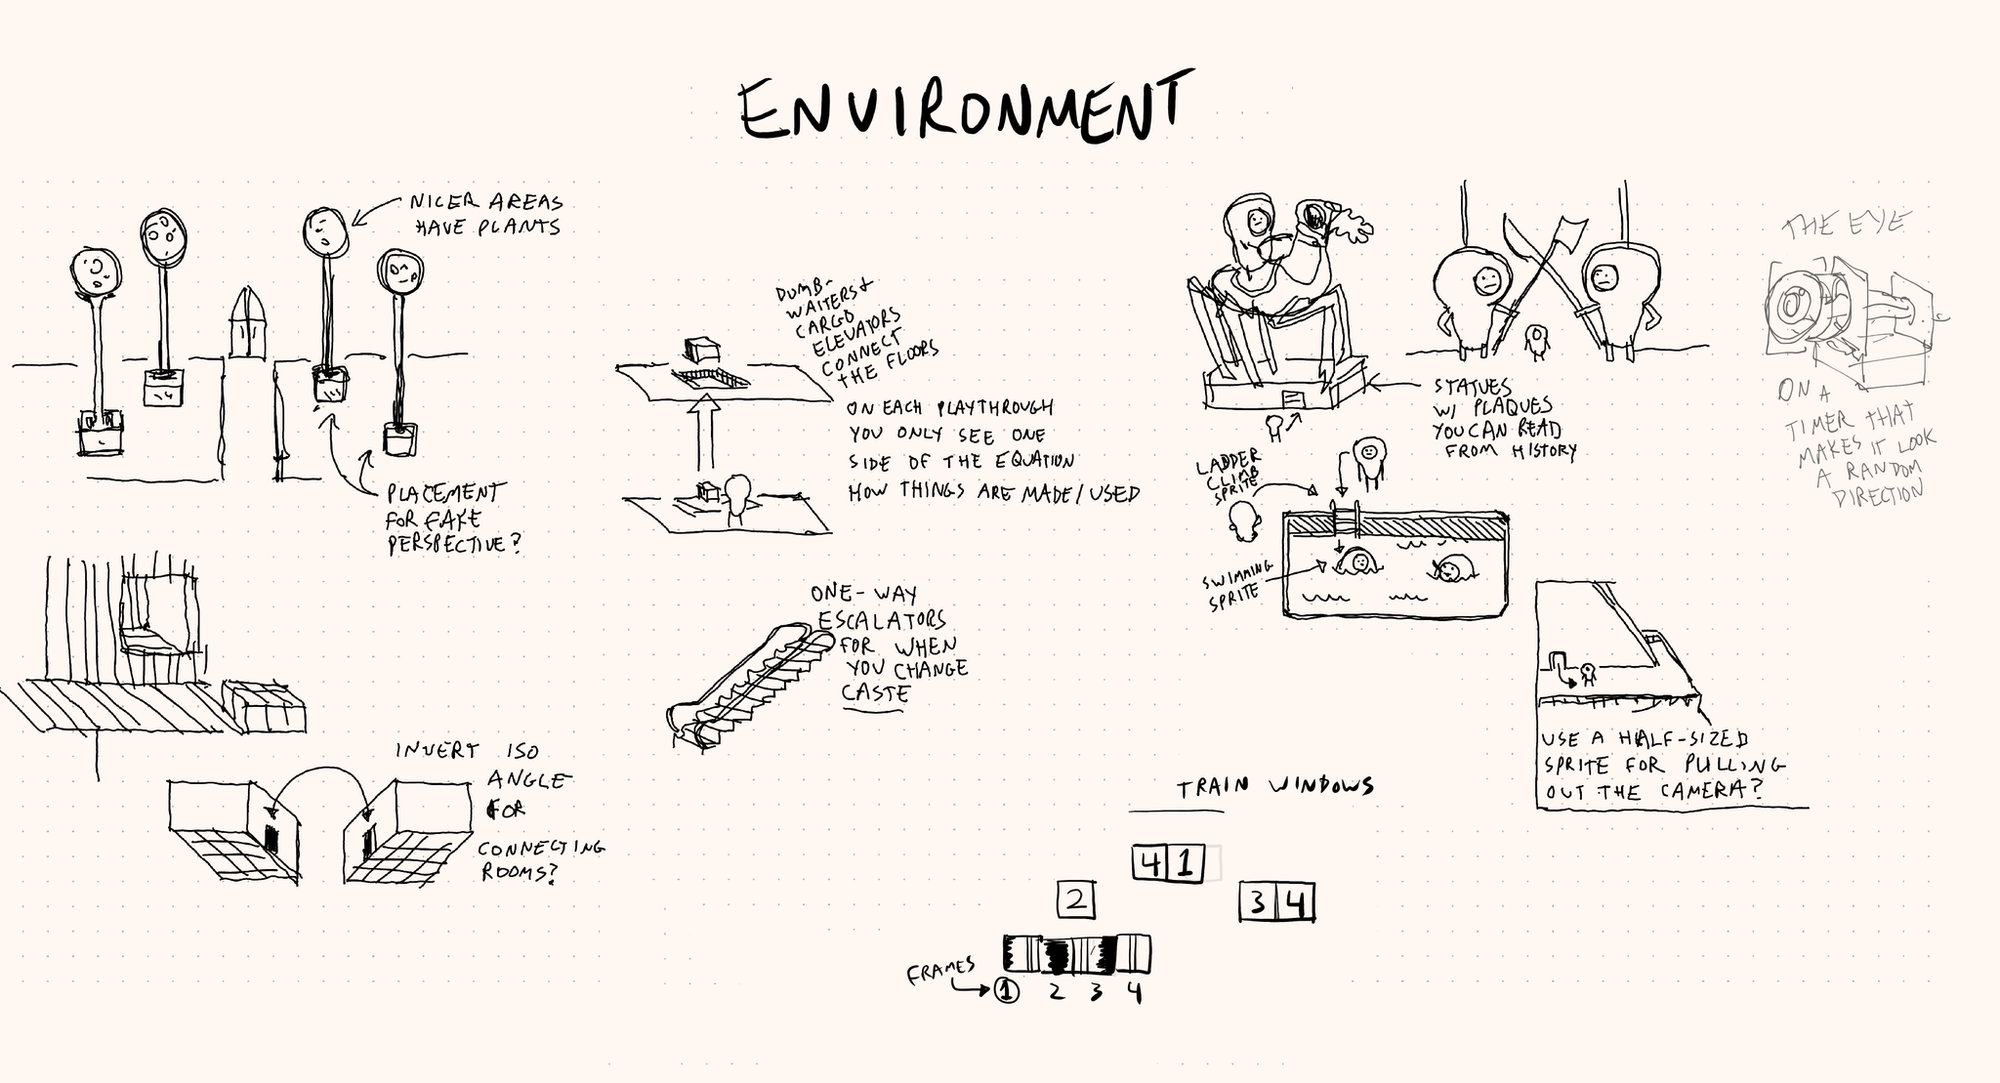 ENVIRONMENT
NICER AREAS
HAVE PLANTS
PLACEMENT
FOR FAKE
PERSPECTIVE?
INVERT ISO
ANGLE
FOR
CONNECTING
ROOMS?
DUMB-
WAITERS +
CARGO
ELEVATORS
CONNECT
THE FLOORS
ON EACH PLAYTHROUGH
YOU ONLY SEE ONE
SIDE OF THE EQUATION
HOW THINGS ARE MADE/USED
ONE-WAY
ESCALATORS
FOR WHEN
YOU CHANGE
CASTE
STATUES
W/ PLAQUES
YOU CAN READ
FROM HISTORY
LADDER
CLIMB
SPRITE
SWIMMING
SPRITE
THE EYE
ON A
TIMER THAT
MAKES IT LOOK
A RANDOM
DIRECTION
USE A HALF-SIZED
SPRITE FOR PULLING
OUT THE CAMERA?
TRAIN WINDOWS
4 1
2
3 4
FRAMES
1 2 3 4